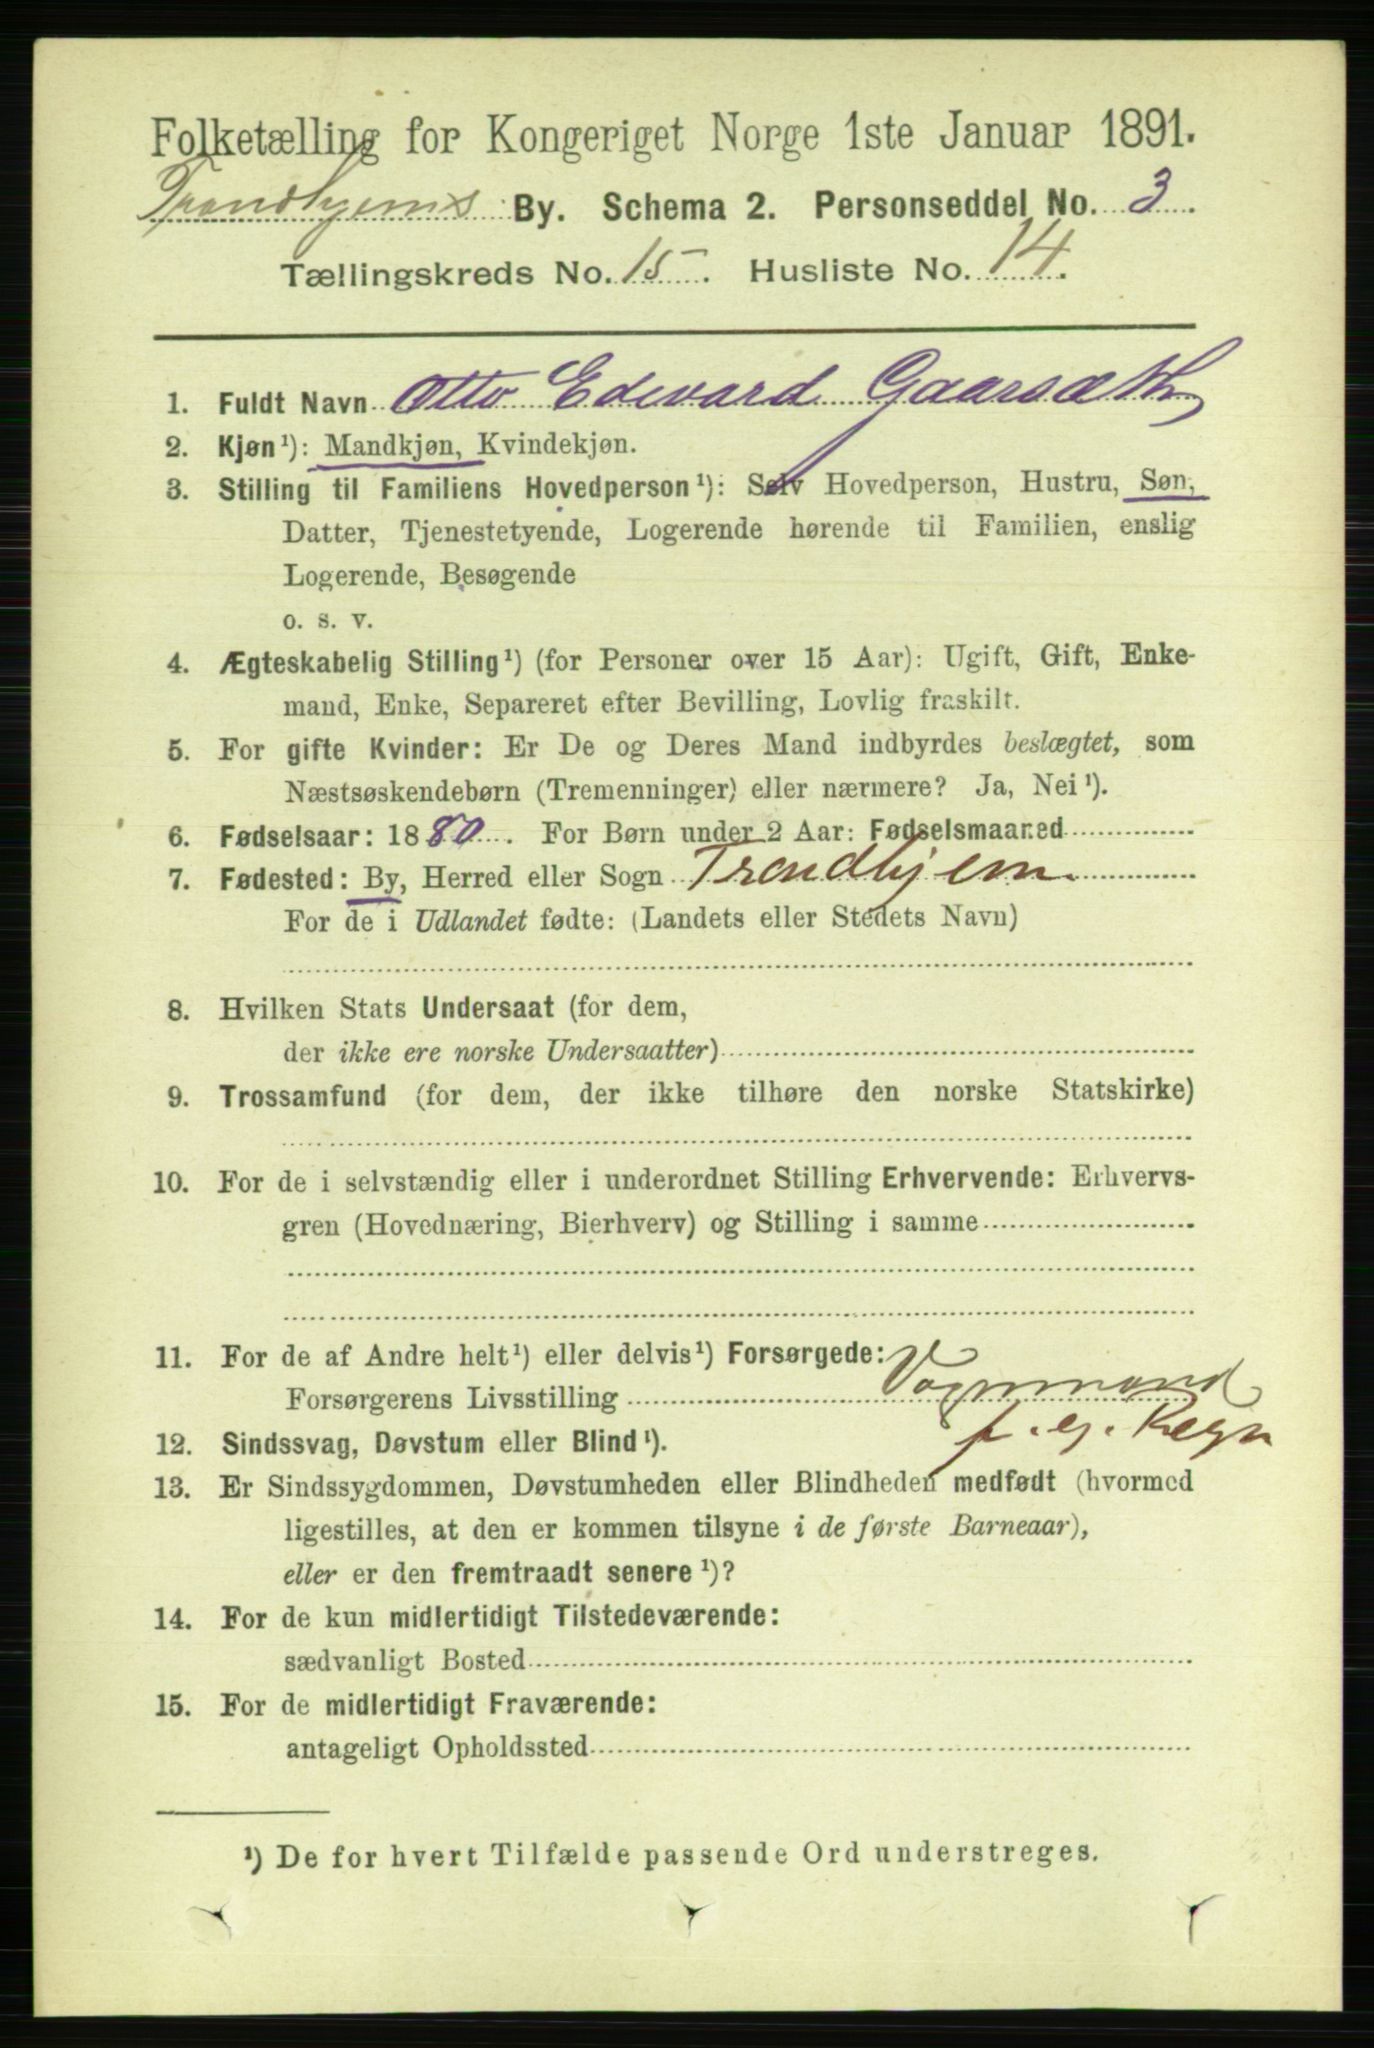 Folketælling for Kongeriget Norge 1ste Januar 1891.
Trondhjems By. Schema 2. Personseddel No. 3.
Tællingskreds No. 15. Husliste No. 14.
1. Fuldt Navn Otto Edevard Gaarsæth
2. Kjøn¹): Mandkjøn, Kvindekjøn.
3. Stilling til Familiens Hovedperson¹): Selv Hovedperson, Hustru, Søn,
Datter, Tjenestetyende, Logerende hørende til Familien, enslig
Logerende, Besøgende
o. s. v.
4. Ægteskabelig Stilling¹) (for Personer over 15 Aar): Ugift, Gift, Enke-
mand, Enke, Separeret efter Bevilling, Lovlig fraskilt.
5. For gifte Kvinder: Er De og Deres Mand indbyrdes beslægtet, som
Næstsøskendebørn (Tremenninger) eller nærmere? Ja, Nei¹).
6. Fødselsaar: 1880. For Børn under 2 Aar: Fødselsmaaned
7. Fødested: By, Herred eller Sogn Trondhjem.
For de i Udlandet fødte: (Landets eller Stedets Navn)
8. Hvilken Stats Undersaat (for dem,
der ikke ere norske Undersaatter)
9. Trossamfund (for dem, der ikke tilhøre den norske Statskirke)
10. For de i selvstændig eller i underordnet Stilling Erhvervende: Erhvervs-
gren (Hovednæring, Bierhverv) og Stilling i samme
11. For de af Andre helt¹) eller delvis¹) Forsørgede:
Forsørgerens Livsstilling Vognmand
f. eg. Regn
12. Sindssvag, Døvstum eller Blind¹).
13. Er Sindssygdommen, Døvstumheden eller Blindheden medfødt (hvormed
ligestilles, at den er kommen tilsyne i de første Barneaar),
eller er den fremtraadt senere¹)?
14. For de kun midlertidigt Tilstedeværende:
sædvanligt Bosted
15. For de midlertidigt Fraværende:
antageligt Opholdssted
¹) De for hvert Tilfælde passende Ord understreges.